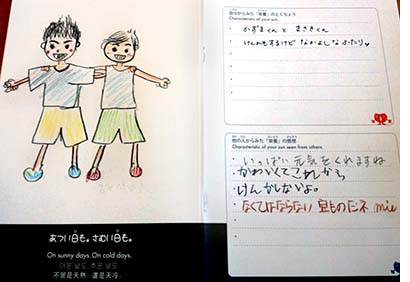 あつい日も。さむい日も。
On sunny days. On cold days.
더운 날도. 추운 날도.
不管是天熱。還是天冷。
自分からみた「栄養」のとくちょう
Characteristic of your sun.
・かずまくんと まさきくん
・けんかもするけど なかよしな ふたり
他の人からみた「栄養」の感想
Characteristic of your sun seen from others.
・いっぱい元気をくれますね
・かわいくて
けんかしないよ。
・なくてはならない 宝ものだネ mie